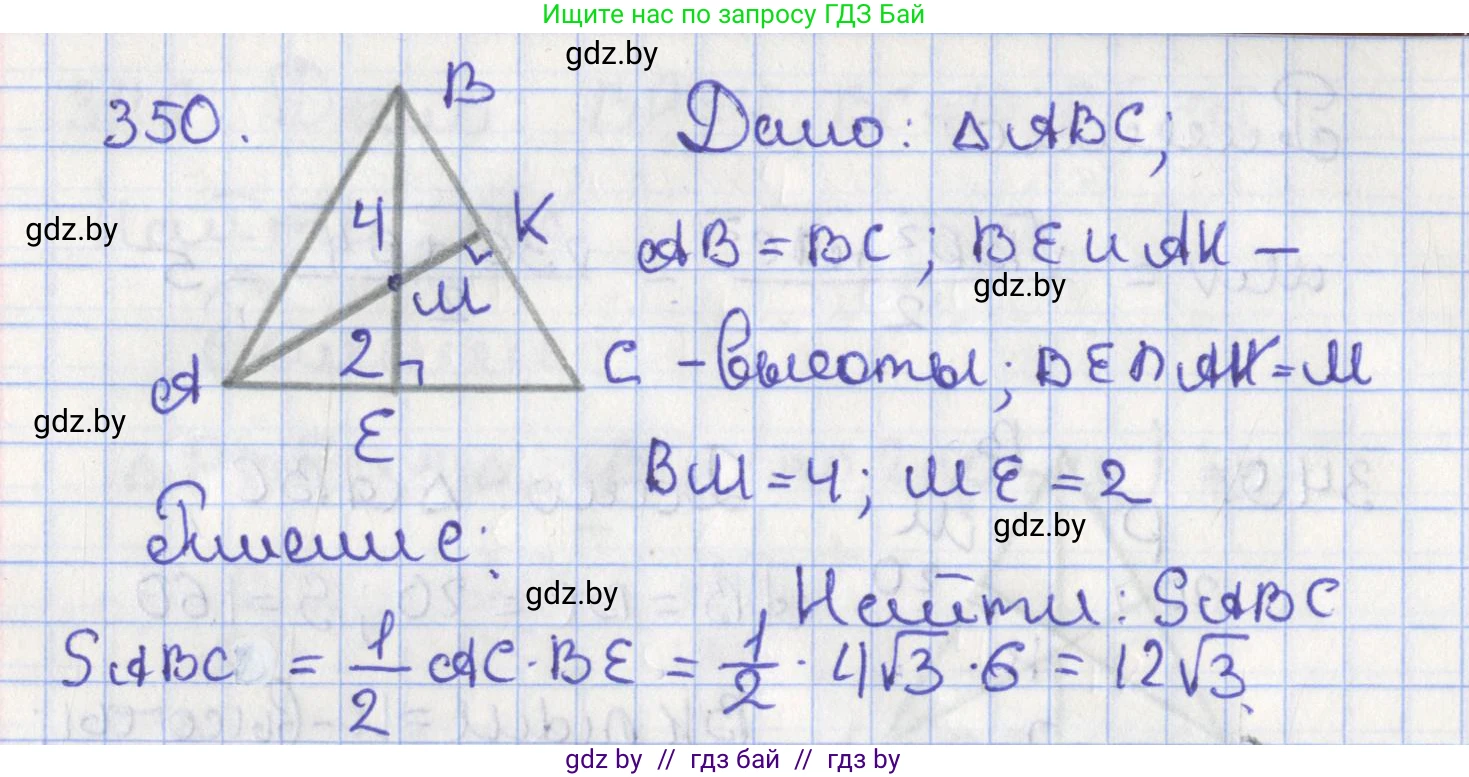 Ищите нас по запросу ГДЗ Бай
gdz.by
350.
B
Дано: △ABC;
gdz.by
4
K
AB = BC; BE и AK –
gdz.by
M
A
2
C
– высоты; BE ∩ AK = M
gdz.by
E
BM = 4; ME = 2
gdz.by
Решение:
gdz.by
Найти: SABC
SABC = 1/2 AC · BE = 1/2 · 4√3 · 6 = 12√3.
gdz by // гдз бай // гдз by